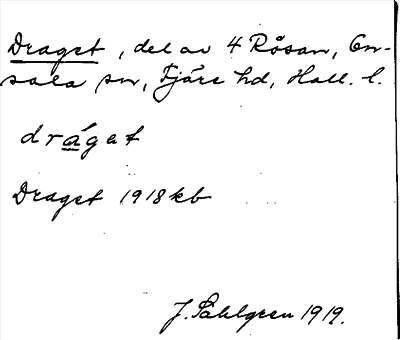 Draget, del av 4 Råsan, On-
sala sn, Fjäre hd, Hall. l.
dráget
Draget 1918 kb
J. Sahlgren 1919.